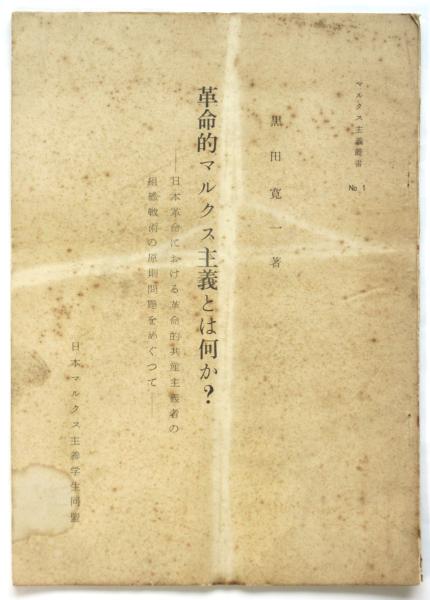 マルクス主義叢書 No 1
黒田寛一著
革命的マルクス主義とは何か?
——日本革命における革命的共産主義者の
組織戦術の原則問題をめぐつて——
日本マルクス主義学生同盟